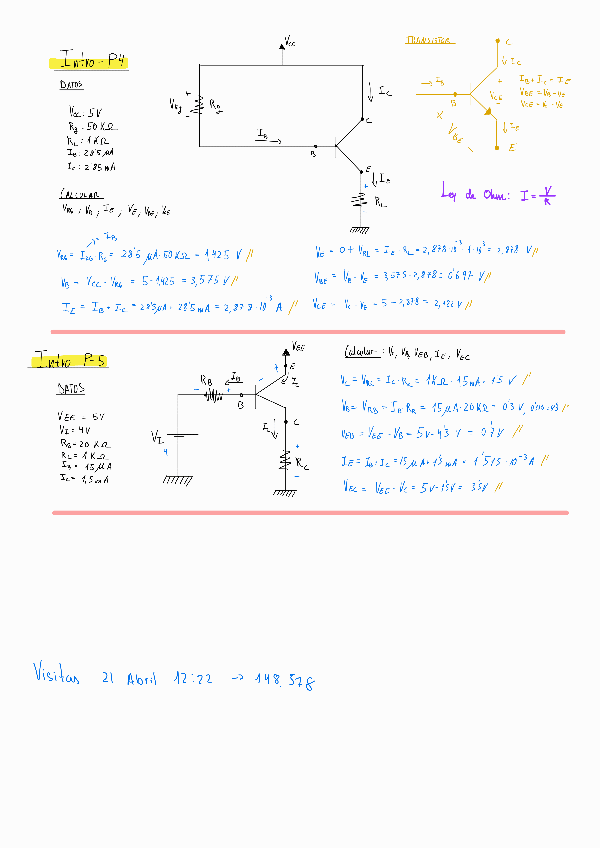 Intro-P4
DATOS
Vcc = 5V
Rg = 50 KΩ
RL = 1 KΩ
IB = 28'5 µA
Ic = 2'85 mA
CALCULAR
VRG, VB, IE, VE, VBE, VCE
Vcc
VRg
RG
IB
B
Ic
C
E
IE
RL
TRANSISTOR
C
Ic
IB
B
VCE
VBE
IE
E
IB + Ic = IE
VBE = VB - VE
VCE = Vc - VE
Ley de Ohm: I = V/R
IB
VRG = IRG · RG = 28'5 µA · 50 KΩ = 1,425 V //
VB = Vcc - VRG = 5 - 1,425 = 3,575 V //
IE = IB + Ic = 28'5 µA + 28'5 mA = 2,878 · 10⁻³ A //
VE = 0 + VRL = IE · RL = 2,878 · 10⁻³ · 1 · 10³ = 2,878 V //
VBE = VB - VE = 3,575 - 2,878 = 0'697 V //
VCE = Vc - VE = 5 - 2,878 = 2,122 V //
Intro P-5
DATOS
VEE = 5V
VI = 4V
RG = 20 KΩ
RL = 1 KΩ
IB = 15 µA
Ic = 1,5 mA
VEE
E
RB
IB
B
IE
VI
Ic
C
Rc
Calcular: Vc, VB, VEB, IE, VEC
Vc = VRC = Ic · RL = 1KΩ · 1'5 mA = 1'5 V //
VB = VRB = IB · RB = 15 µA · 20 KΩ = 0'3 V,
VEB = VEE - VB = 5V - 4'3 V = 0'7V //
IE = IB + Ic = 15 µA + 1'5 mA = 1'515 · 10⁻³ A //
VEC = VEE - Vc = 5V - 1'5V = 3'5V //
Visitas 21 Abril 12:22 → 148.578